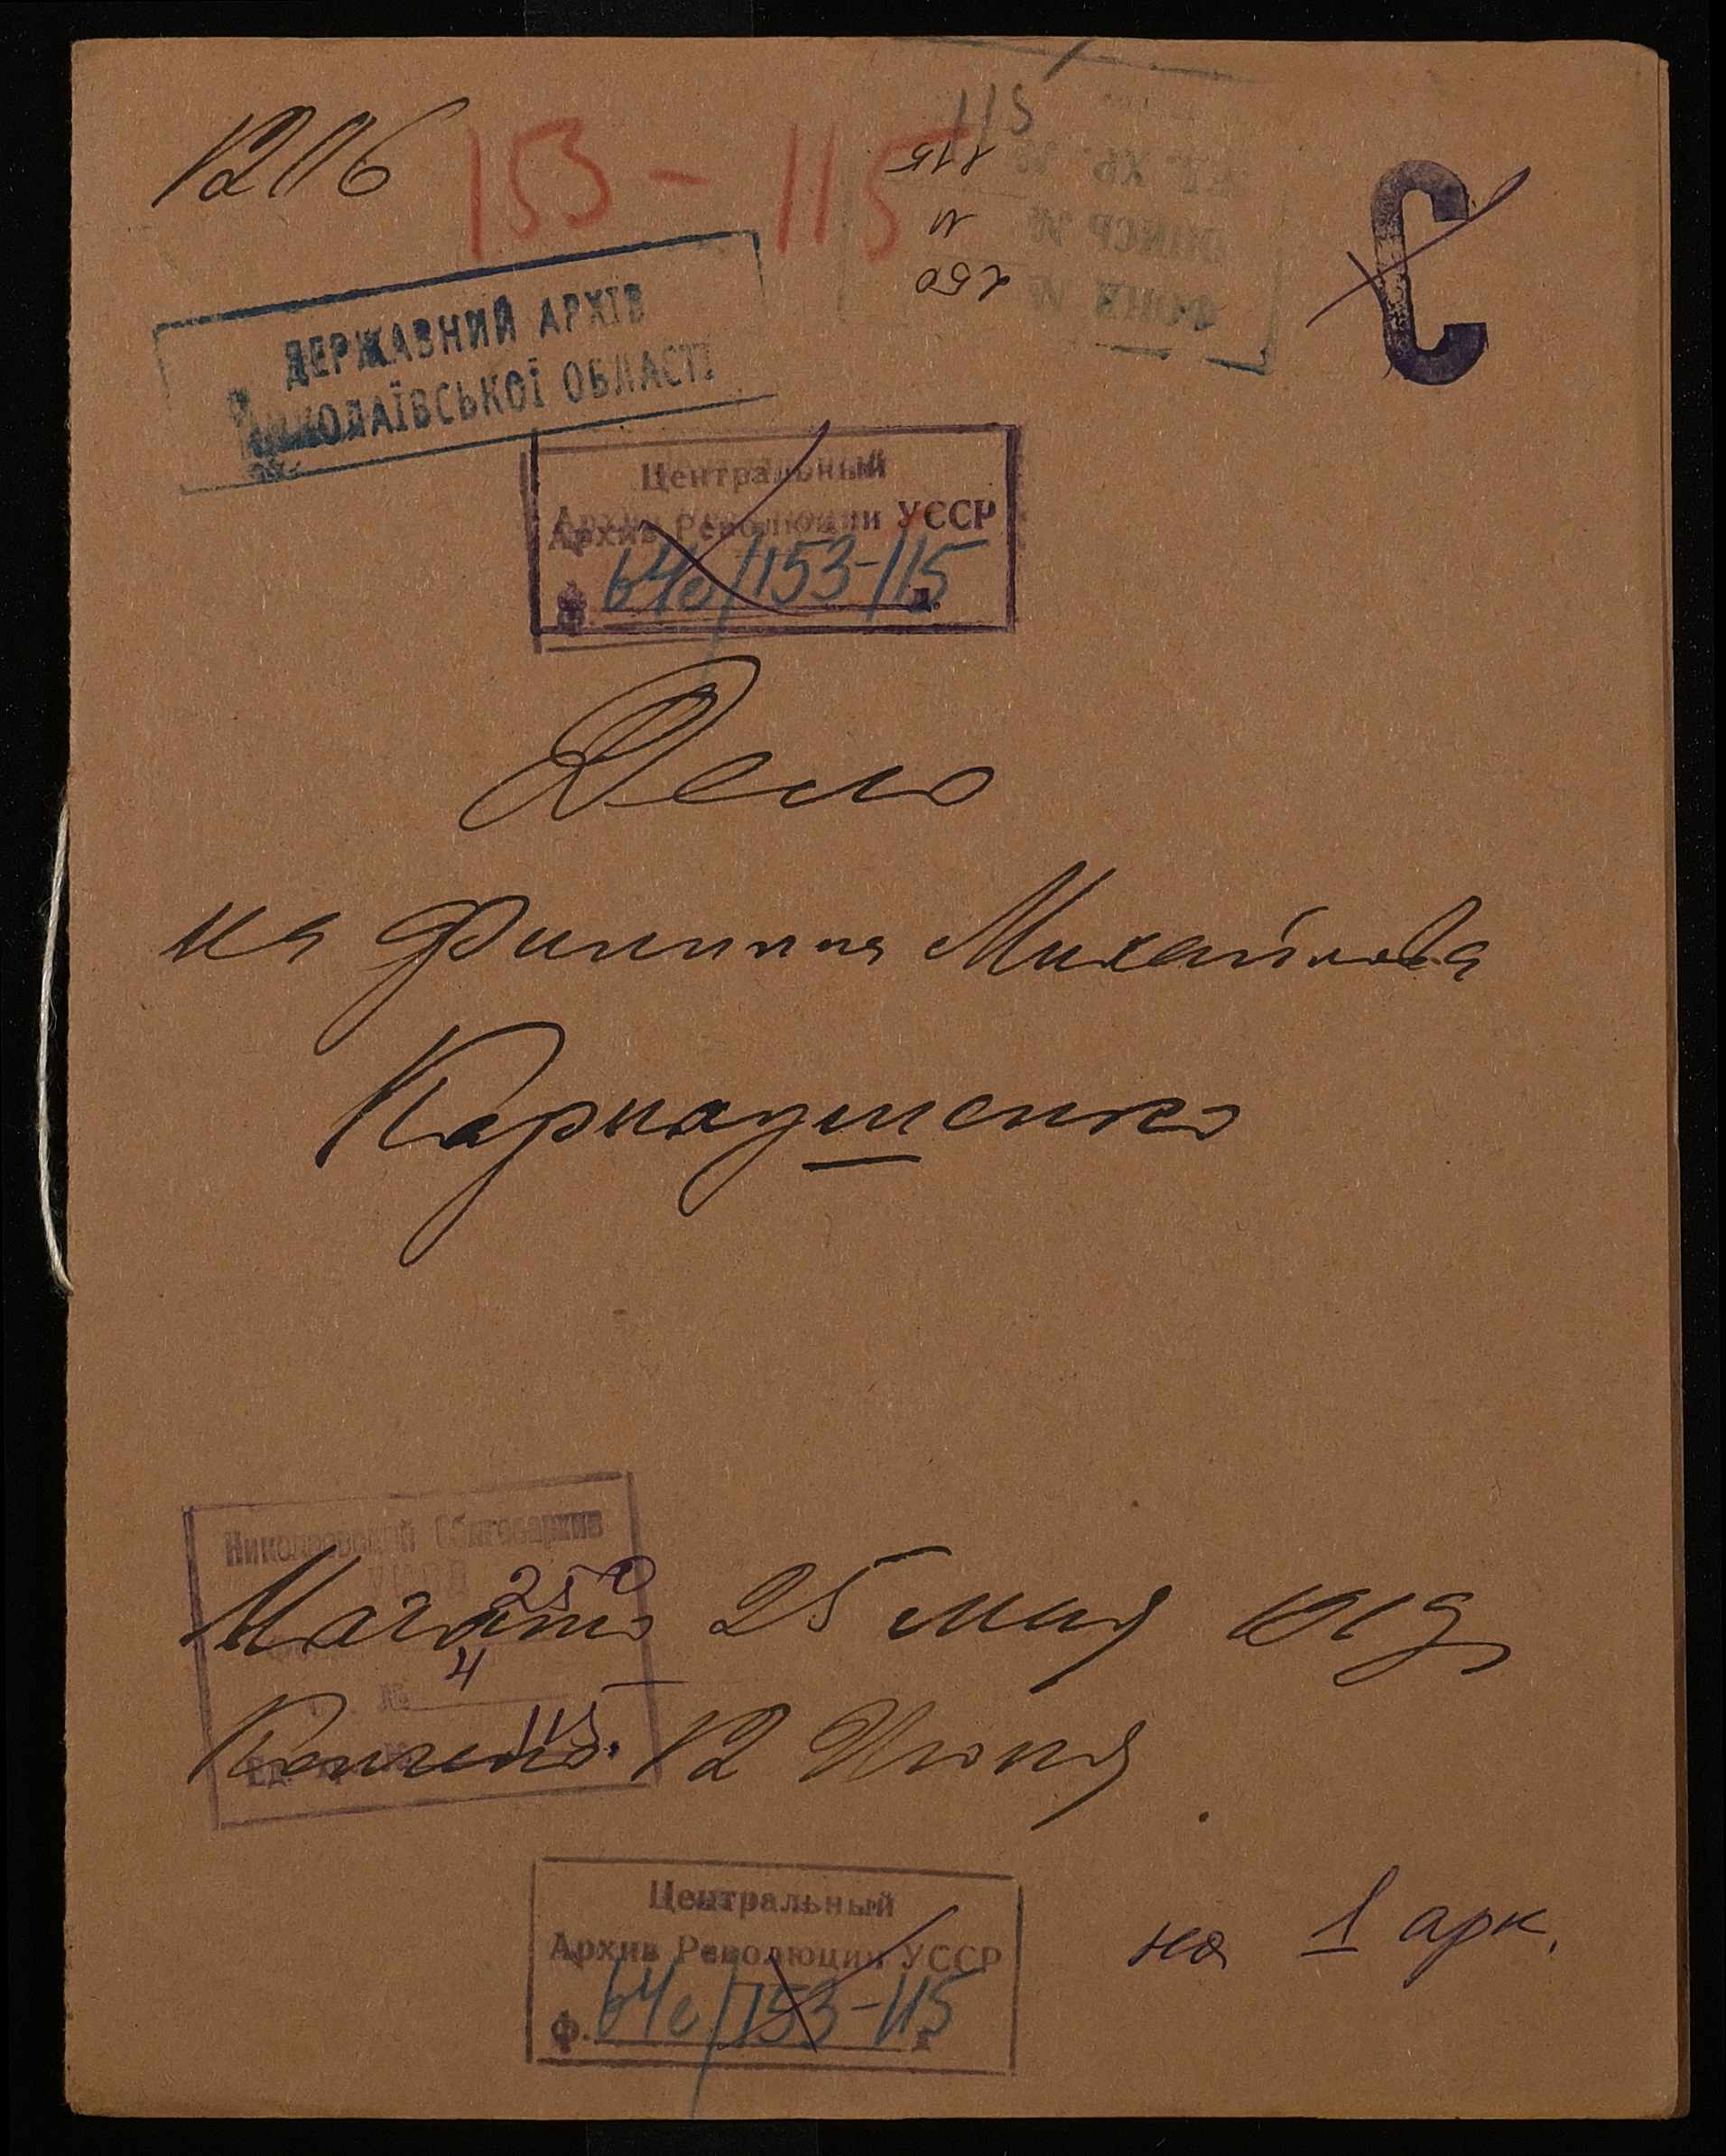 1206
153-115
115
ЕД. ХР. № 115
ОПИСЬ № 4
ФОНД № 250
С
ДЕРЖАВНИЙ АРХІВ
МИКОЛАЇВСЬКОЇ ОБЛАСТІ
Центральный
Архив Революции УССР
Ф. 64с/153-115 д.
Дело
на Филиппа Михайлова
Карнаушенко
Николаевский Облгосархив
УНКВД
250
Начато 25 мая 1919
№ 4
115.
Кончено 12 Июня
Центральный
Архив Революции УССР
Ф. 64с/153-115
на 1 арк.